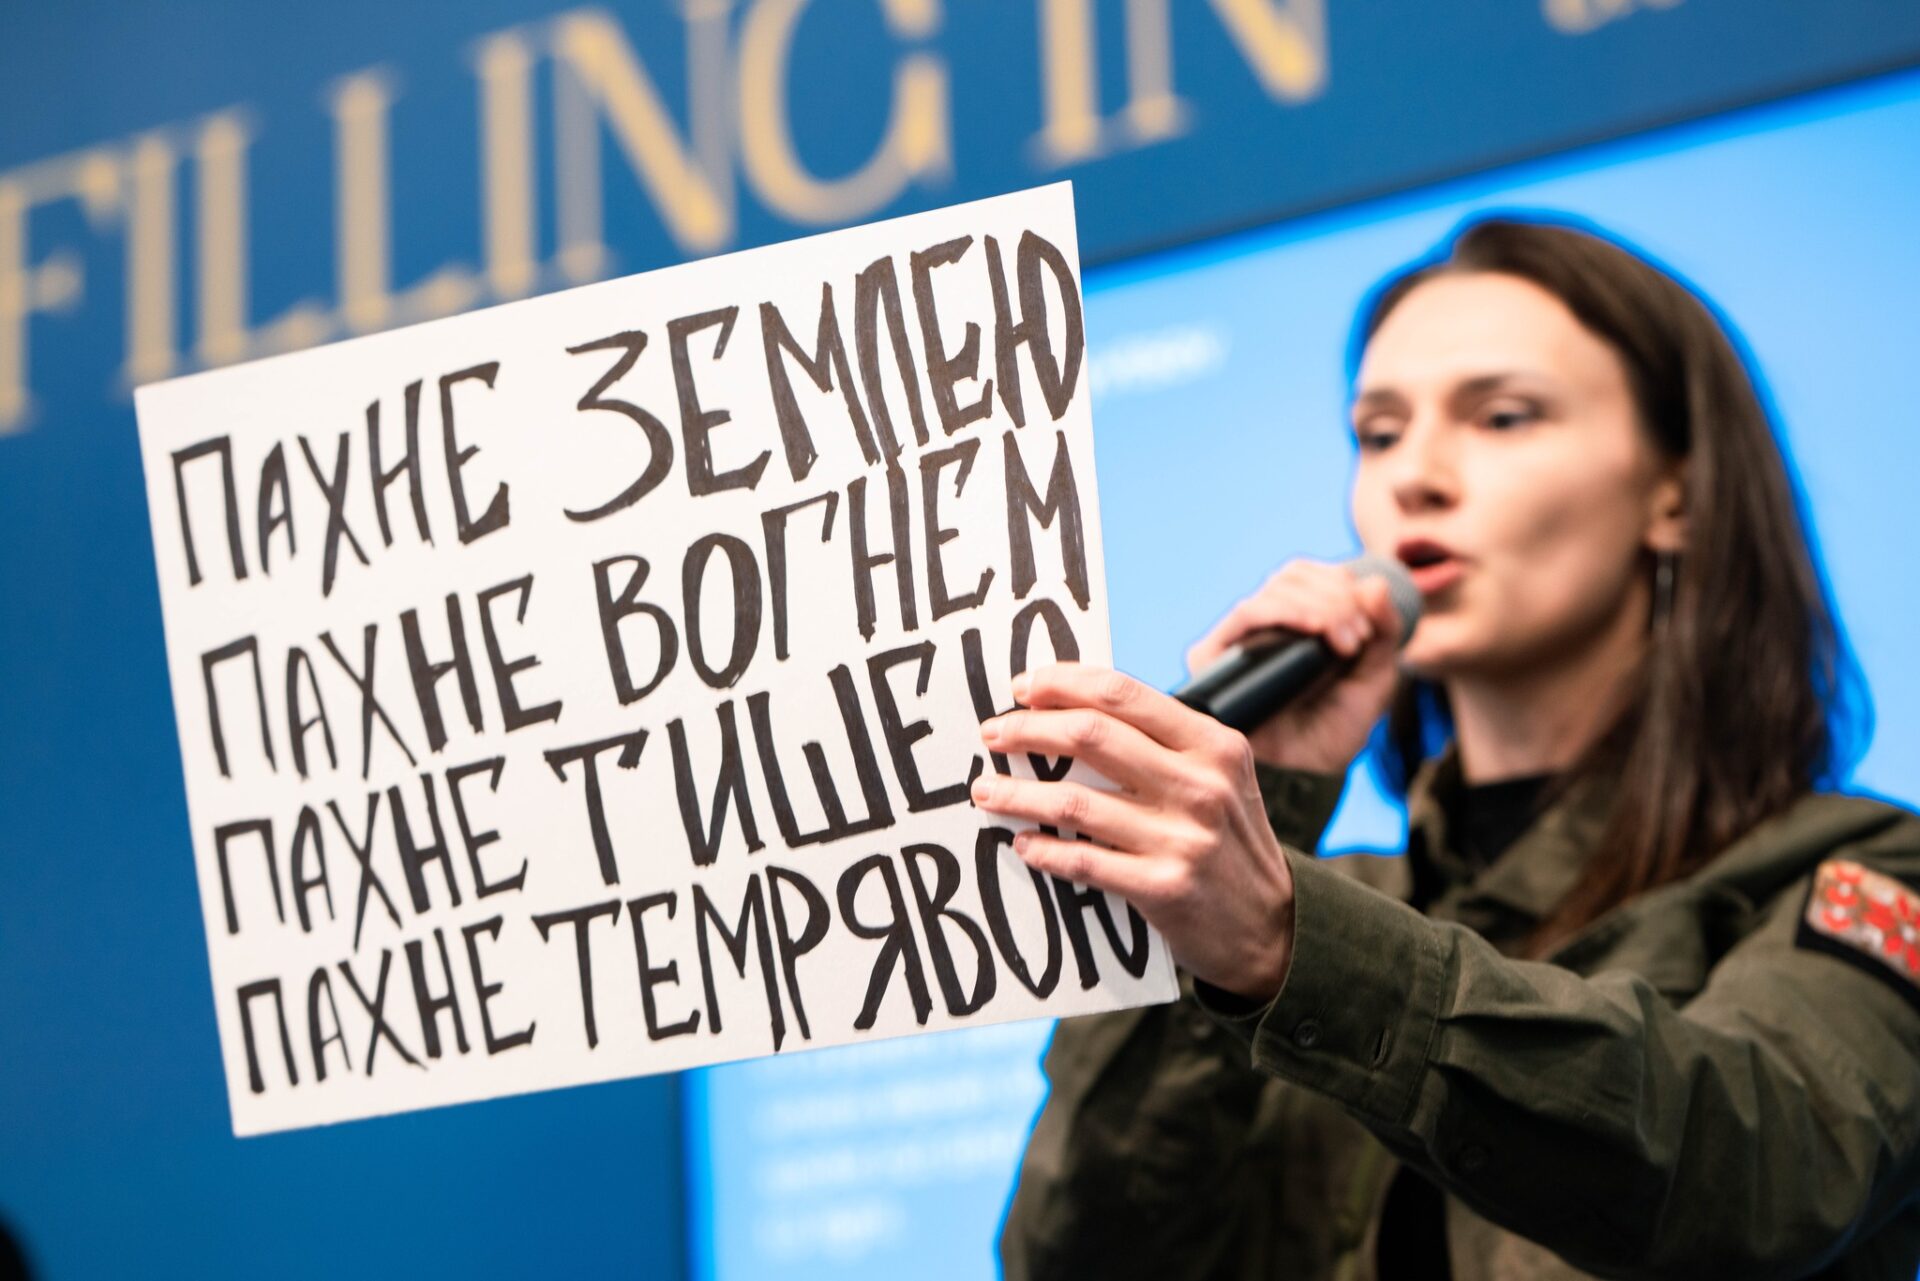 FILLING IN
ПАХНЕ ЗЕМЛЕЮ
ПАХНЕ ВОГНЕМ
ПАХНЕ ТИШЕЮ
ПАХНЕ ТЕМРЯВОЮ